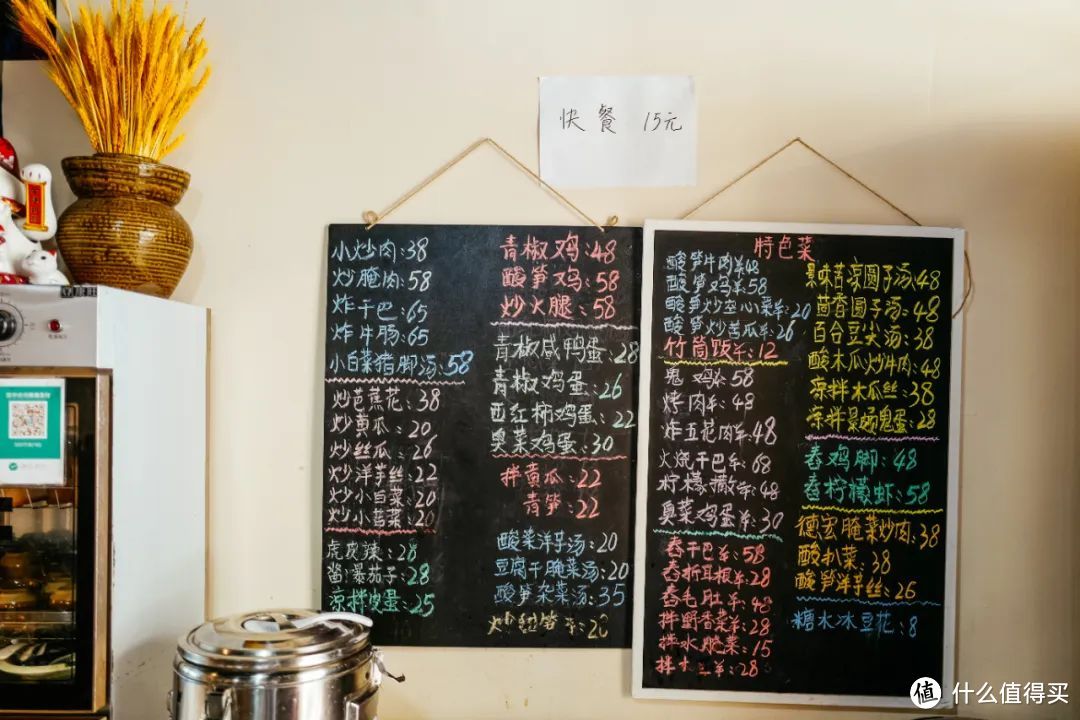 快餐 15元
小炒肉:38
炒腌肉:58
炸干巴:65
炸牛肠:65
小白菜猪脚汤:58
炒芭蕉花:38
炒黄瓜:20
炒丝瓜:26
炒洋芋丝:22
炒小白菜:20
炒小苦菜:20
虎皮辣:28
酱爆茄子:28
凉拌皮蛋:25
青椒鸡:48
酸笋鸡:58
炒火腿:58
青椒咸鸭蛋:28
青椒鸡蛋:26
西红柿鸡蛋:22
臭菜鸡蛋:30
拌黄瓜:22
青笋:22
酸菜洋芋汤:20
豆腐干腌菜汤:20
酸笋杂菜汤:35
特色菜
酸笋牛肉¥48
酸笋鸡¥58
酸笋炒空心菜¥20
酸笋炒苦瓜¥26
竹筒饭¥12
鬼鸡¥58
烤肉¥48
炸五花肉¥48
火烧干巴¥68
柠檬撒¥48
臭菜鸡蛋¥30
舂干巴¥58
舂折耳根¥28
舂毛肚¥48
拌野香菜¥28
拌水腌菜:15
景味苦凉圆子汤:48
茴香圆子汤:48
百合豆尖汤:38
酸木瓜炒牛肉:48
凉拌木瓜丝:38
凉拌景颇鬼蛋:28
舂鸡脚:48
舂柠檬虾:58
德宏腌菜炒肉:38
酸扒菜:38
酸笋洋芋丝:26
糖水冰豆花:8
值 什么值得买